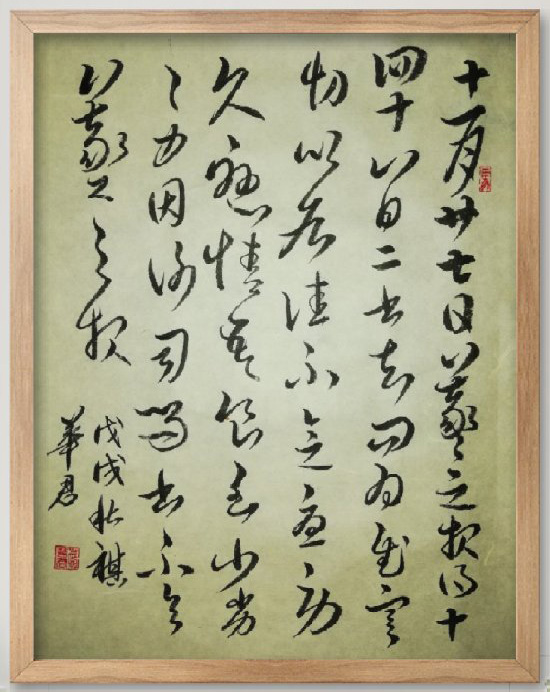 十一月廿七日羲之報得十
四十八日二書知問為慰寒
切比各佳不念憂勞
久懸情吾食至少劣
〻力因謝司馬書不具
羲之報
戊戌秋祺
華君